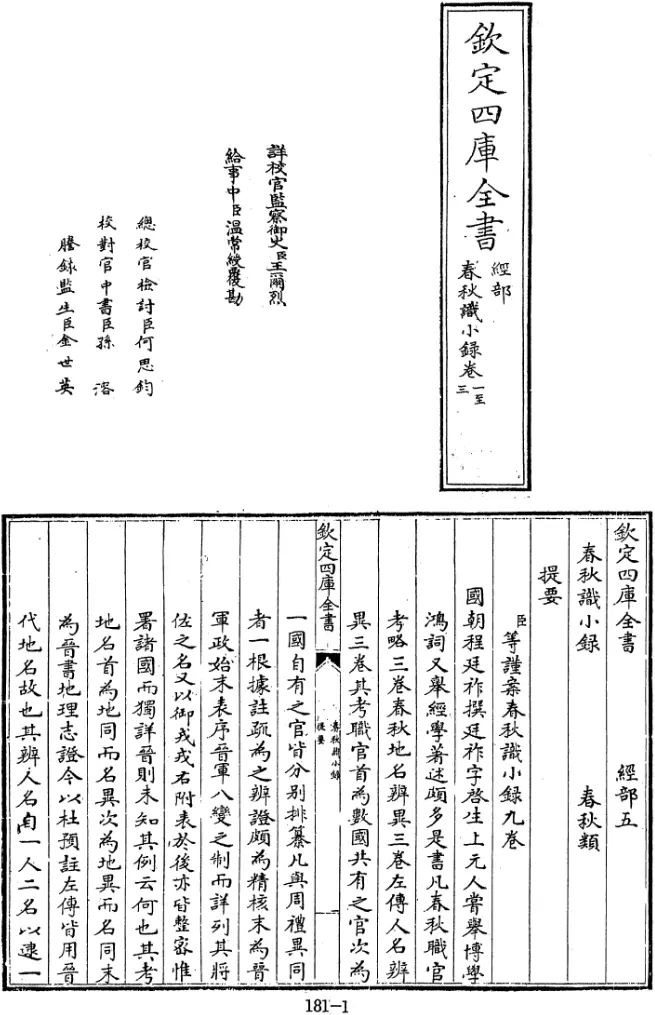 欽定四庫全書
經部
春秋識小錄卷一至三
詳校官監察御史臣王爾烈
給事中臣溫常綬覆勘
總校官檢討臣何思鈞
校對官中書臣孫溶
謄錄監生臣金世英
欽定四庫全書 經部五
春秋識小錄 春秋類
提要
臣等謹案春秋識小錄九卷
國朝程廷祚撰廷祚字啓生上元人嘗舉博學
鴻詞又舉經學著述頗多是書凡春秋職官
考略三卷春秋地名辨異三卷左傳人名辨
異三卷其考職官首為數國共有之官次為
欽定四庫全書
春秋識小錄
提要
一國自有之官皆分别排纂凡與周禮異同
者一一根據註疏為之辨證頗為精核末為晉
軍政始末表序晉軍八變之制而詳列其將
佐之名又以御戎戎右附表於後亦皆整密惟
署諸國而獨詳晉則未知其例云何也其考
地名首為地同而名異次為地異而名同末
為晉書地理志證今以杜預註左傳皆用晉
代地名故也其辨人名自一人二名以逮一
181-1